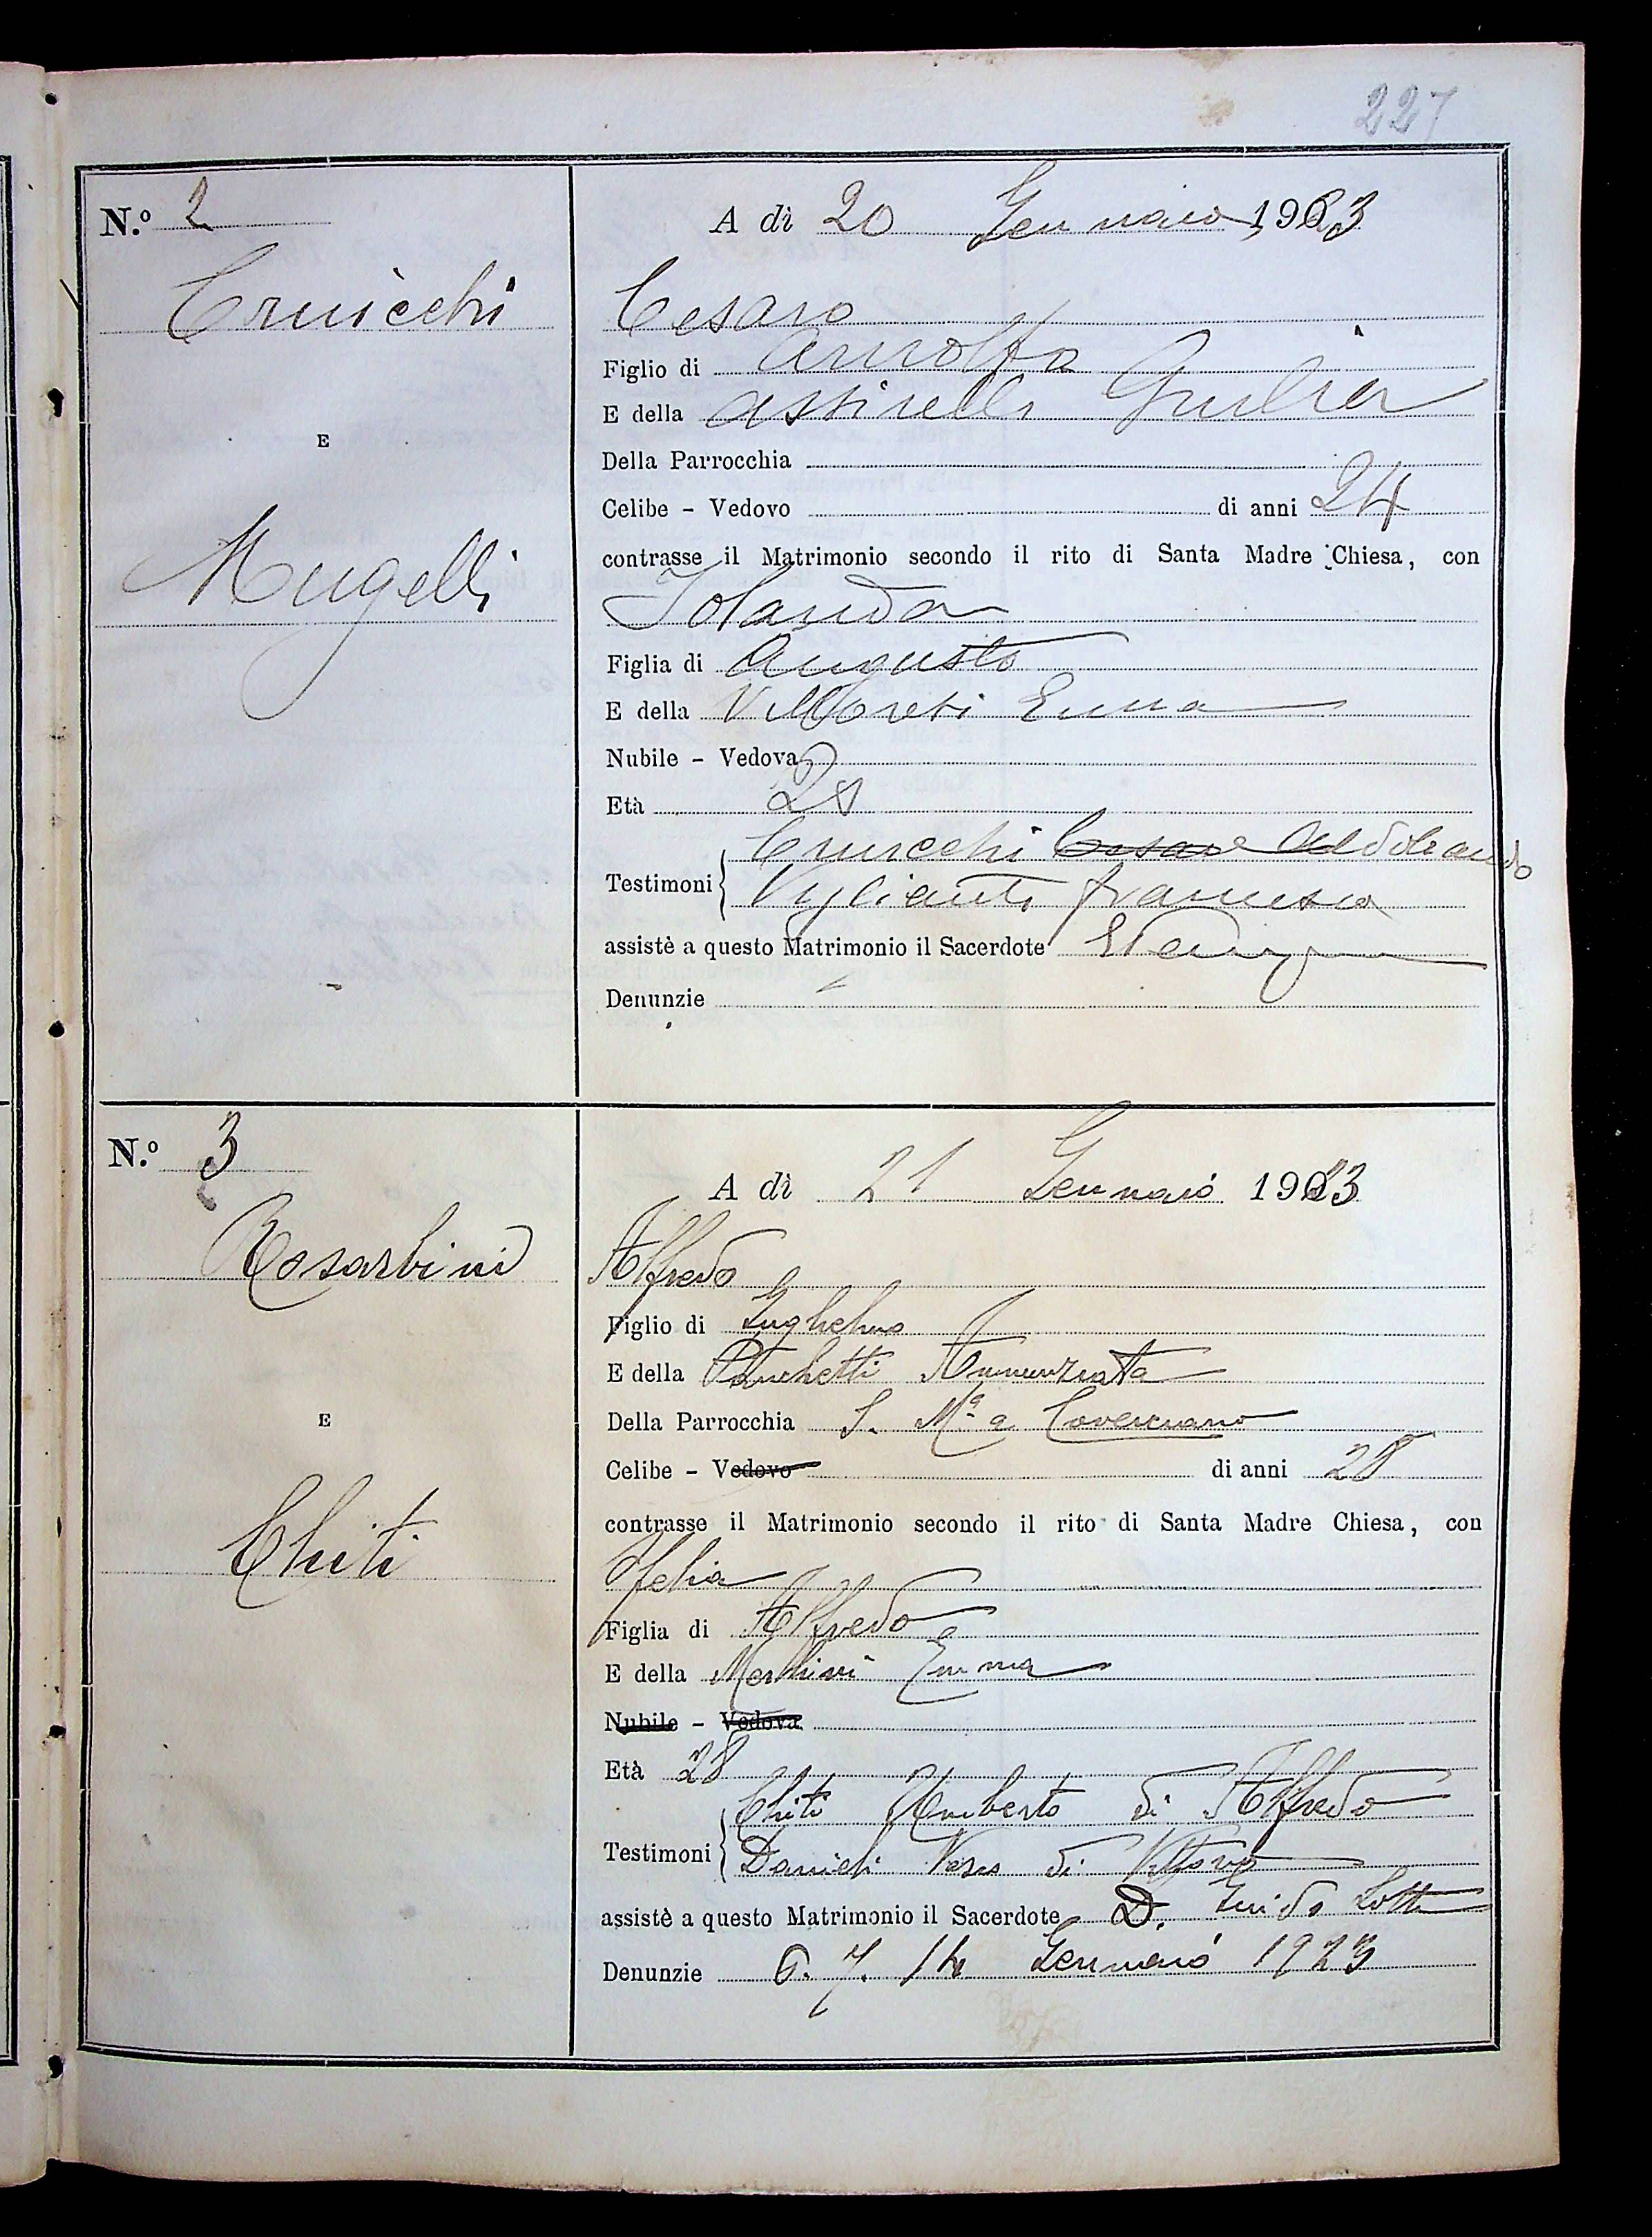 227
N.º 2
A dì 20 Gennaio 1923
Cruicchi
Cesare
Figlio di Arnolfo
E della Assirelli Giulia
Della Parrocchia
E
Celibe - Vedovo di anni 24
contrasse il Matrimonio secondo il rito di Santa Madre Chiesa, con
Mugelli
Iolanda
Figlia di Augusto
E della Villoresi Emma
Nubile - Vedova
Età
Testimoni { Cruicchi Cesare Aldobrando
Viglianti Francesco
assistè a questo Matrimonio il Sacerdote
Denunzie
N.º 3
A dì 21 Gennaio 1923
Alfredo
Figlio di Guglielmo
E della Annunziata
Della Parrocchia S. Mª a Coverciano
E
Celibe - Vedovo di anni 28
contrasse il Matrimonio secondo il rito di Santa Madre Chiesa, con
Chiti
Ofelia
Figlia di Alfredo
E della Emma
Nubile - Vedova
Età 28
Testimoni { Chiti Umberto di Alfredo
Danieli di Vittorio
assistè a questo Matrimonio il Sacerdote D. Guido Lotti
Denunzie 6. 7. 14 Gennaio 1923